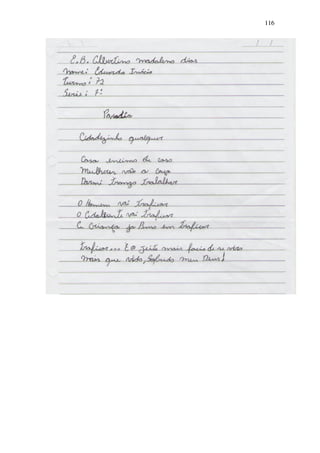 116
E.B. Albertino madaleno dias
Nome: Eduardo Inácio
Turma: 72
Serie: 7ª
Paradia
Cidadezinha qualquer
Casa encima de casa
Mulheres vão a caça
Darmi
O Homem vai traficar
O vai traficar
A Criança ja Pensa em traficar
traficar... E o jeito mais facio de se viver
Mais que vida, Sofrida meu Deus!